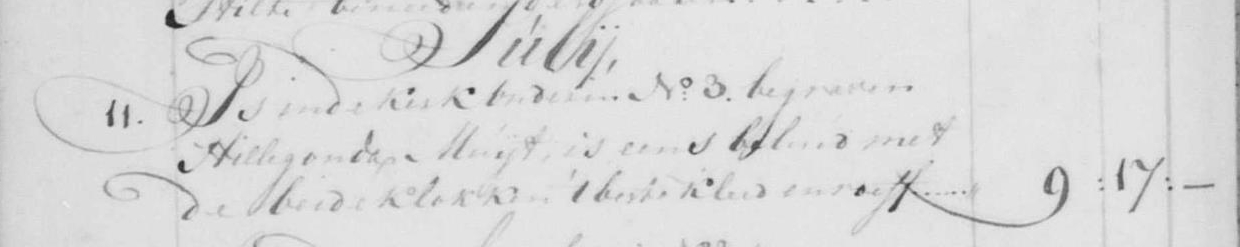 Julij,
11. Is inde kerk onder in No. 3. begraven
Hillegonda Muijt, is eens beluid met
de beide klokken 't beste kleed en roeff ...... 9 : 17 : —